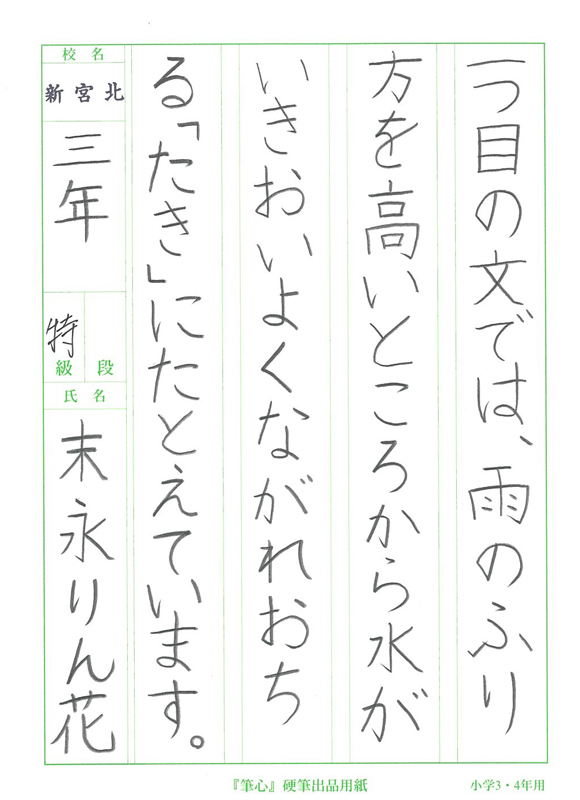 一つ目の文では、雨のふり
方を高いところから水が
いきおいよくながれおち
る「たき」にたとえています。
校名
新宮北
三年
特
級 段
氏名
末永りん花
『筆心』硬筆出品用紙
小学3・4年用